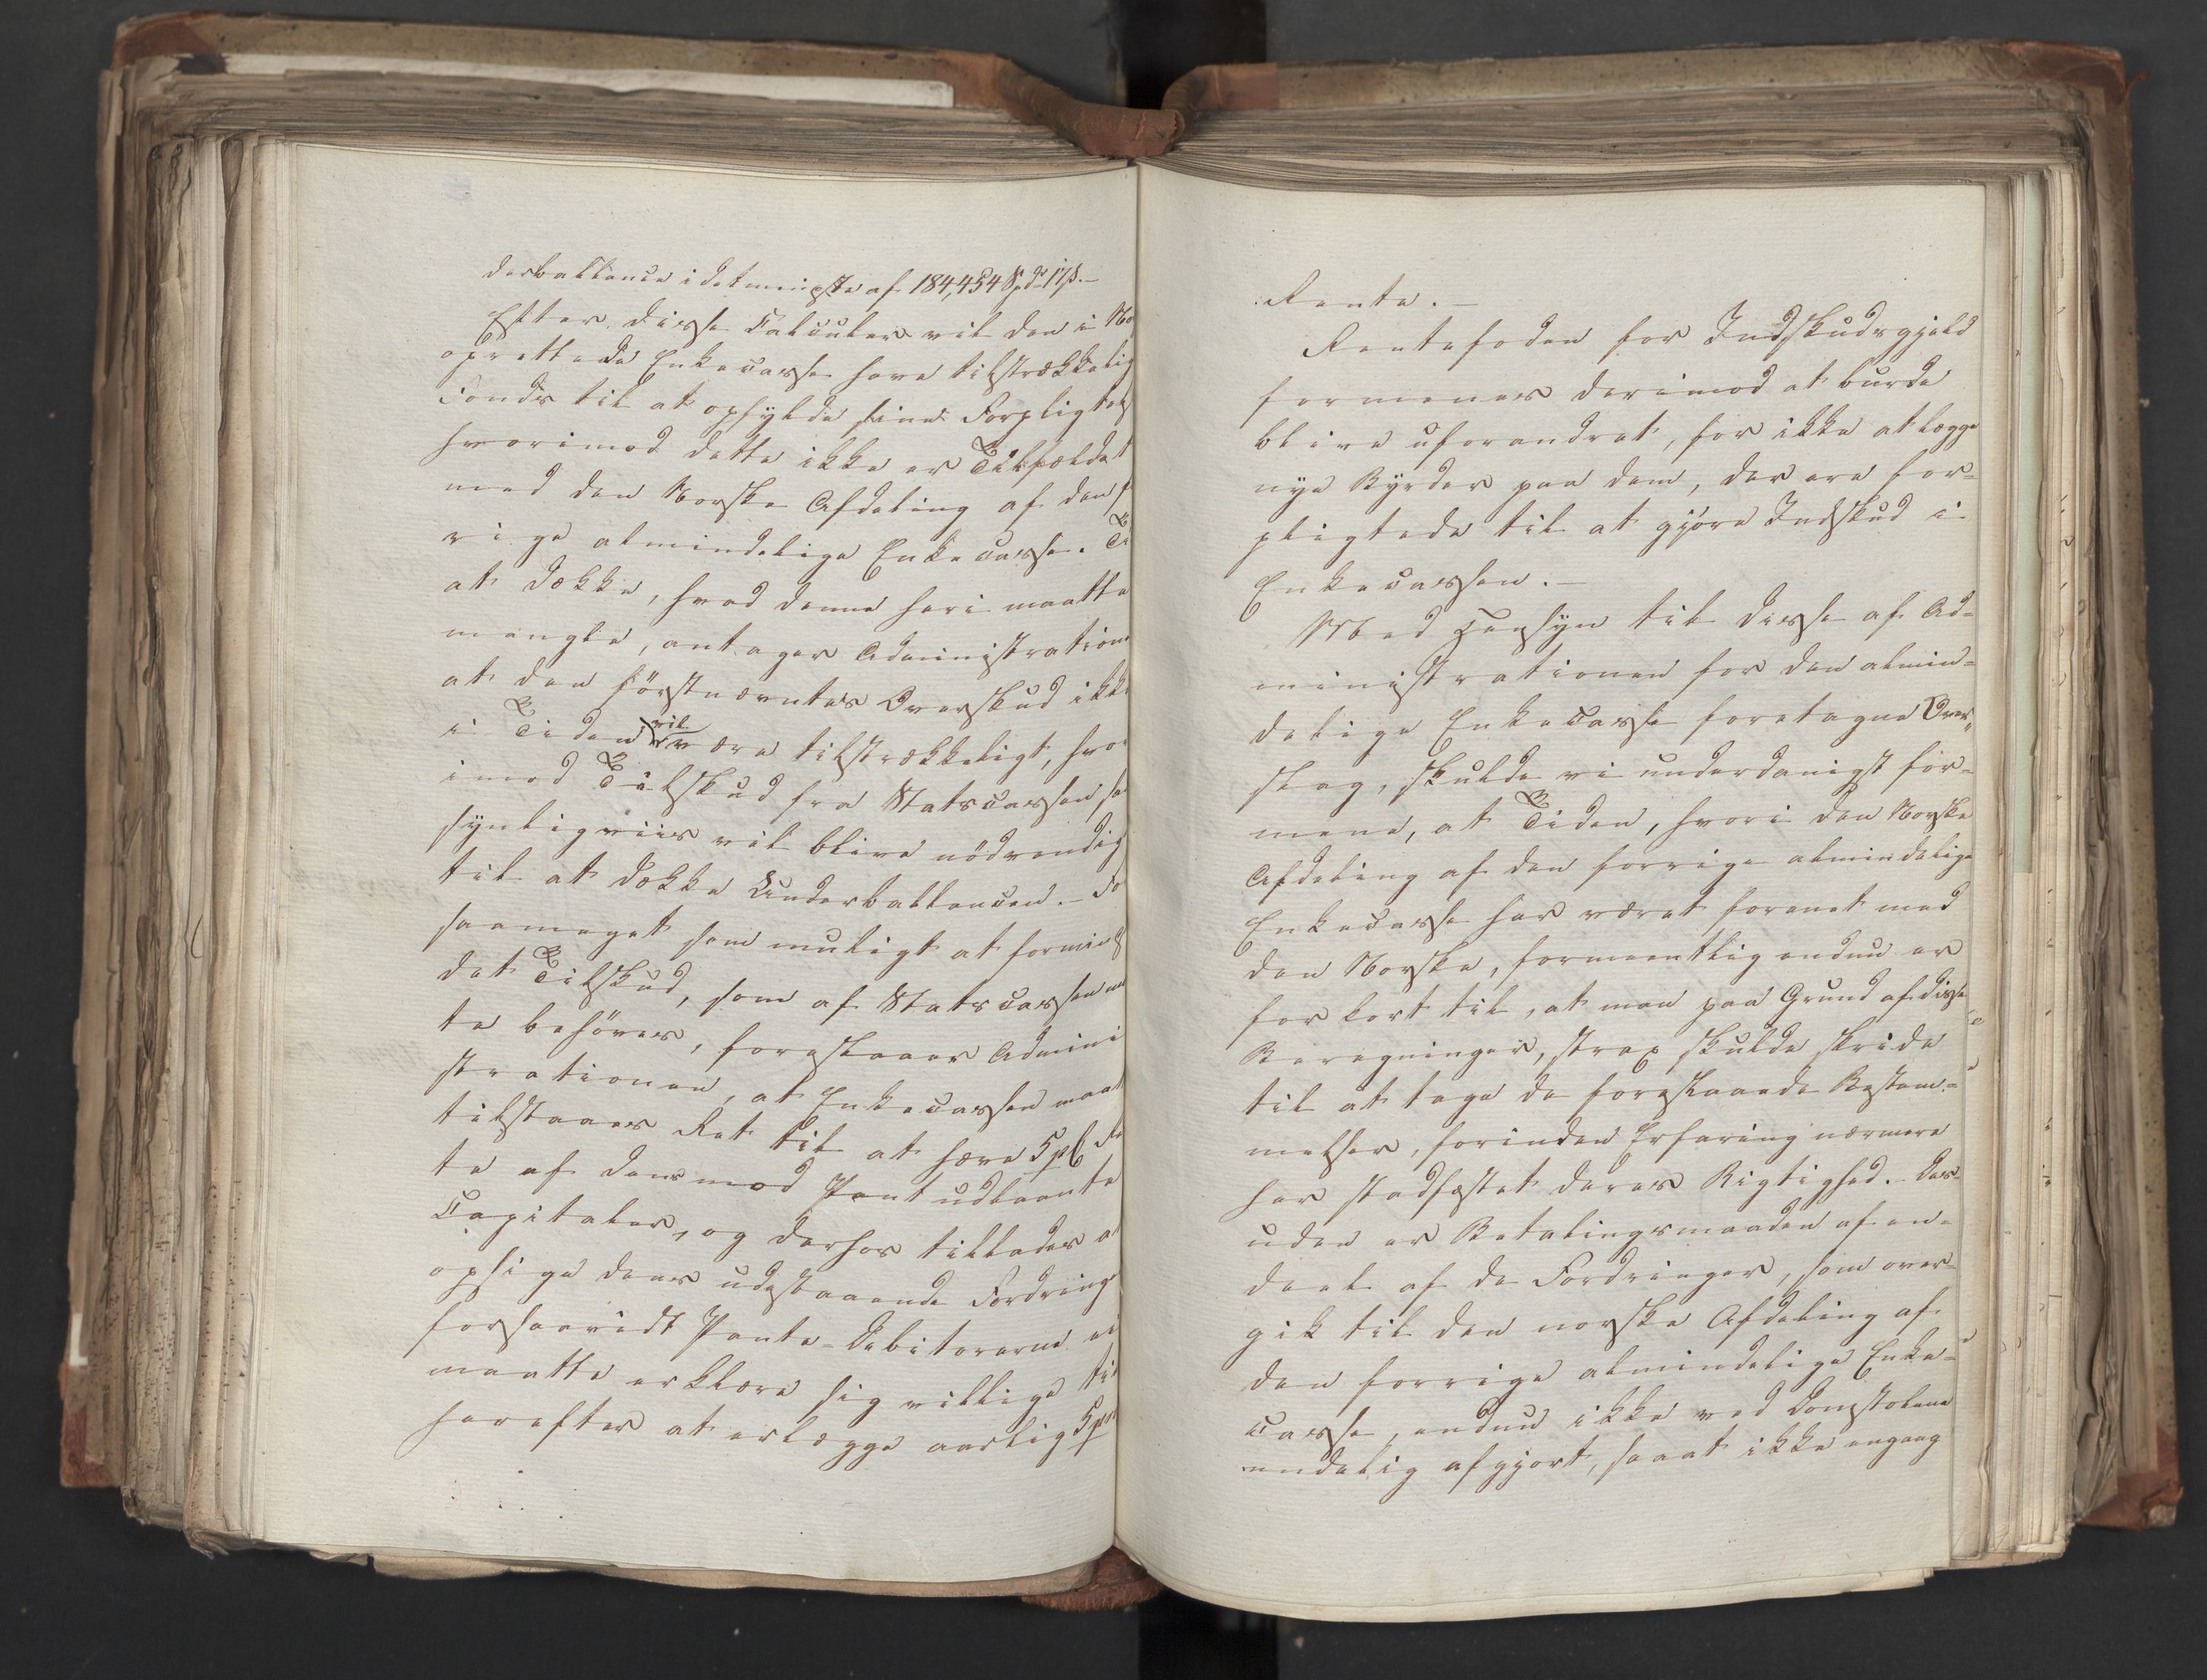 derballance i det mindste af 184,454 Spd 17 ß.-
Efter disse Calculer vil den i No
oprettede Enkecasse have tilstrækkelig
Fonds til at opfylde sine Forpligtels
hvorimod dette ikke er Tilfældet
med den Norske Afdeling af den f
rige almindelige Enkecasse. Ti
at dække, hvad denne heri maatte
mangle, antager Administration
at den førstnævntes Overskud ikke
i Tiden vil være tilstrækkeligt, hvor
imod Tilskud fra Statscassen sa
synligviis vil blive nødvendig
til at dække Underballancen. - Fo
saameget som muligt at formind
det Tilskud, som af Statscassen
te behøves, foreslaaer Admini
strationen, at Enkecassen maat
tilstaaes Ret til at hæve 5 pC Re
te af dens mod Pant udlaante
Capitaler, og derhos tillades at
opsige dens udestaaende Fordringe
forsaavidt Pante-Debitorerne ei
maatte erklære sig villige til
herefter at erlægge aarlig 5 p
Rente. -
Rentefoden for Indskudsgjeld
formenes derimod at burde
blive uforandret, for ikke at lægge
nye Byrder paa dem, der ere for-
pligtede til at gjøre Indskud i
Enkecassen. -
Med Hensyn til disse af Ad-
ministrationen for den almin-
delige Enkecasse foretagne Over-
slag, skulde vi underdanigst for-
mene, at Tiden, hvori den Norske
Afdeling af den forrige almindelige
Enkecasse har været forenet med
den Norske, formeentlig endnu er
for kort til, at man paa Grund af disse
Beregninger, strax skulde skride
til at tage de foreslaaede Bestem-
melser, forinden Erfaring nærmere
har stadfæstet deres Rigtighed. - Des-
uden er Betalingsmaaden af en-
deel af de Fordringer, som over-
gik til den norske Afdeling af
den forrige almindelige Enke-
casse, endnu ikke ved Domstolene
endelig afgjort, saaat ikke engang